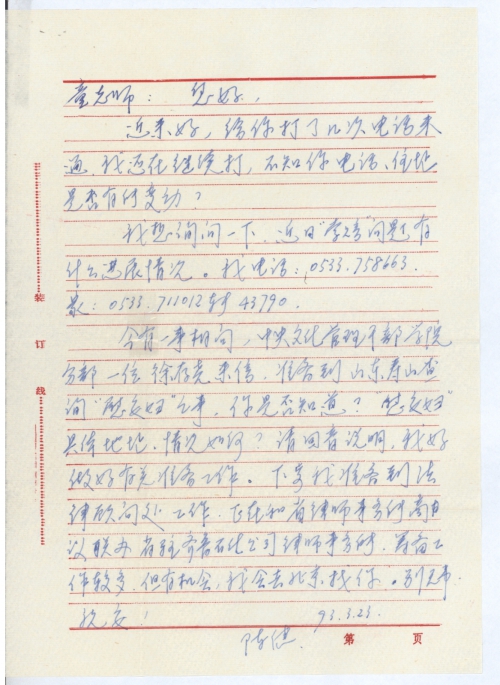 童老师： 您好，
近来好，给你打了几次电话未
通，我还在继续打，不知你电话、住地
是否有何变动？
我想询问一下，近日"索赔"问题有
什么进展情况。我电话：0533.758663.
0533.711012转43790.
今有一事相问，中央文化管理干部学院
一位徐存尧来信，准备到山东寿山查
询"慰安妇"之事，你是否知道？"慰安妇"
具体地址、情况如何？请回音说明，我好
做好有关准备工作。下步我准备到法
律顾问处工作，正在和省律师事务所商
议联办省驻齐鲁石化公司律师事务所，筹备工
作较多，但有机会，我会去北京找你。别无事.
祝安！
93.3.23.
陈健.
第 页
装
订
线